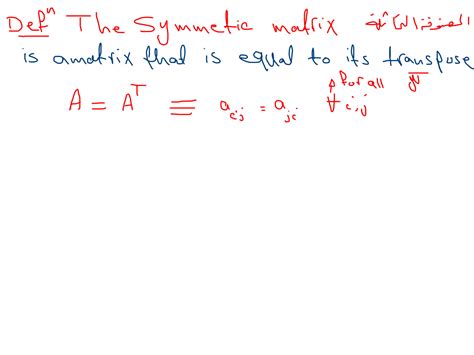 Defⁿ The Symmetic matrix المصفوفة المتماثلة
is a matrix that is equal to its transpose
for all
A = Aᵀ ≡ aᵢⱼ = aⱼᵢ ∀ i,j